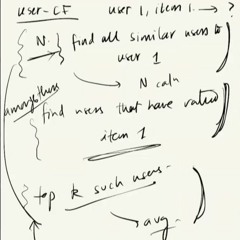 user-CF user 1, item 1. → ?
N: find all similar users to
user 1
→ N caln
amongst these
find users that have rated
item 1
top k such users-
→ avg.